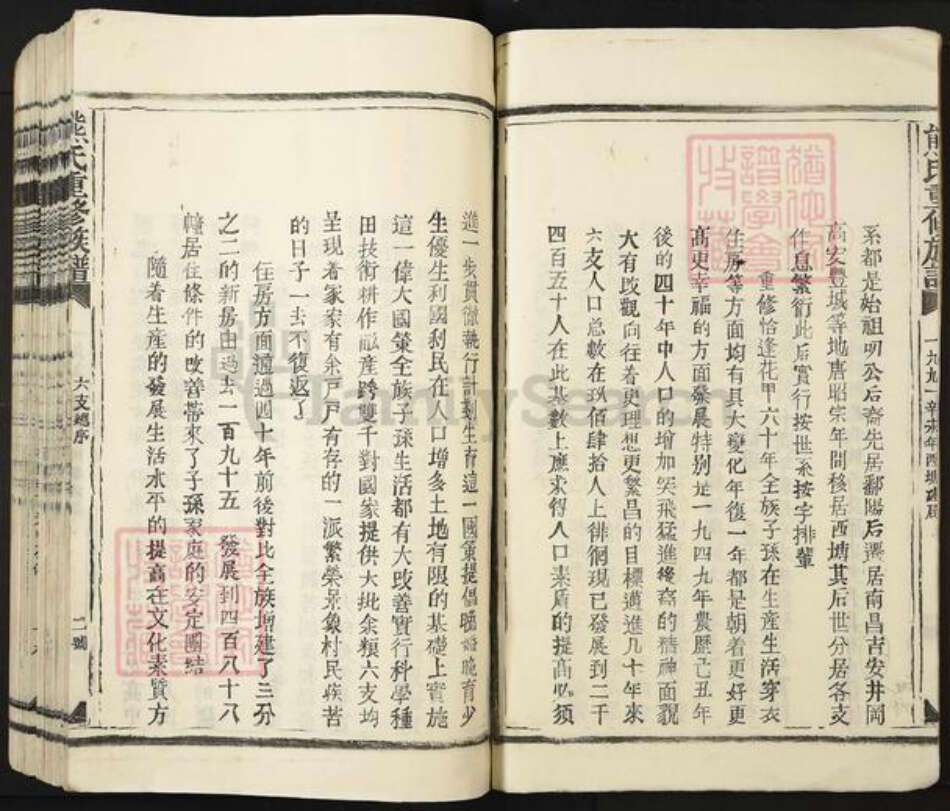 熊氏重修族譜
一九九一辛未年西塘
系都是始祖明公后裔先居鄱陽后遷居南昌吉安井岡
高安豐城等地唐昭宗年間移居西塘其后世分居各支
作息繁衍此后實行按世系按字排輩
重修恰逢花甲六十年全族子孫在生產生活穿衣
住房等方面均有具大變化年復一年都是朝着更好更
高更幸福的方面發展特別是一九四九年農歷己丑年
後的四十年中人口的增加突飛猛進後裔的精神面貌
大有改觀向往着史理想更繁昌的目標邁進几十年來
六支人口总數在玖佰肆拾人上徘徊現已發展到二千
四百五十人在此基數上應求得人口素盾的提高必須
進一步貫徹執行計劃生育這一國策提倡晚婚晚育少
生優生利國利民在人口增多土地有限的基礎上實施
這一偉大國策全族子孫生活都有大改善實行科學種
田技術耕作畝產跨雙千對國家提供大批余粮六支均
呈現着家家有余戸戸有存的一派繁榮景象村民疾苦
的日子一去不復返了
住房方面通過四十年前後對比全族增建了三分
之二的新房由過去一百九十五 發展到四百八十八
幢居住條件的改善帶來了子孫家庭的安定團結
隨着生產的發展生活水平的提高在文化素質方
熊氏重修族譜
六支總序
二號
FamilySearch